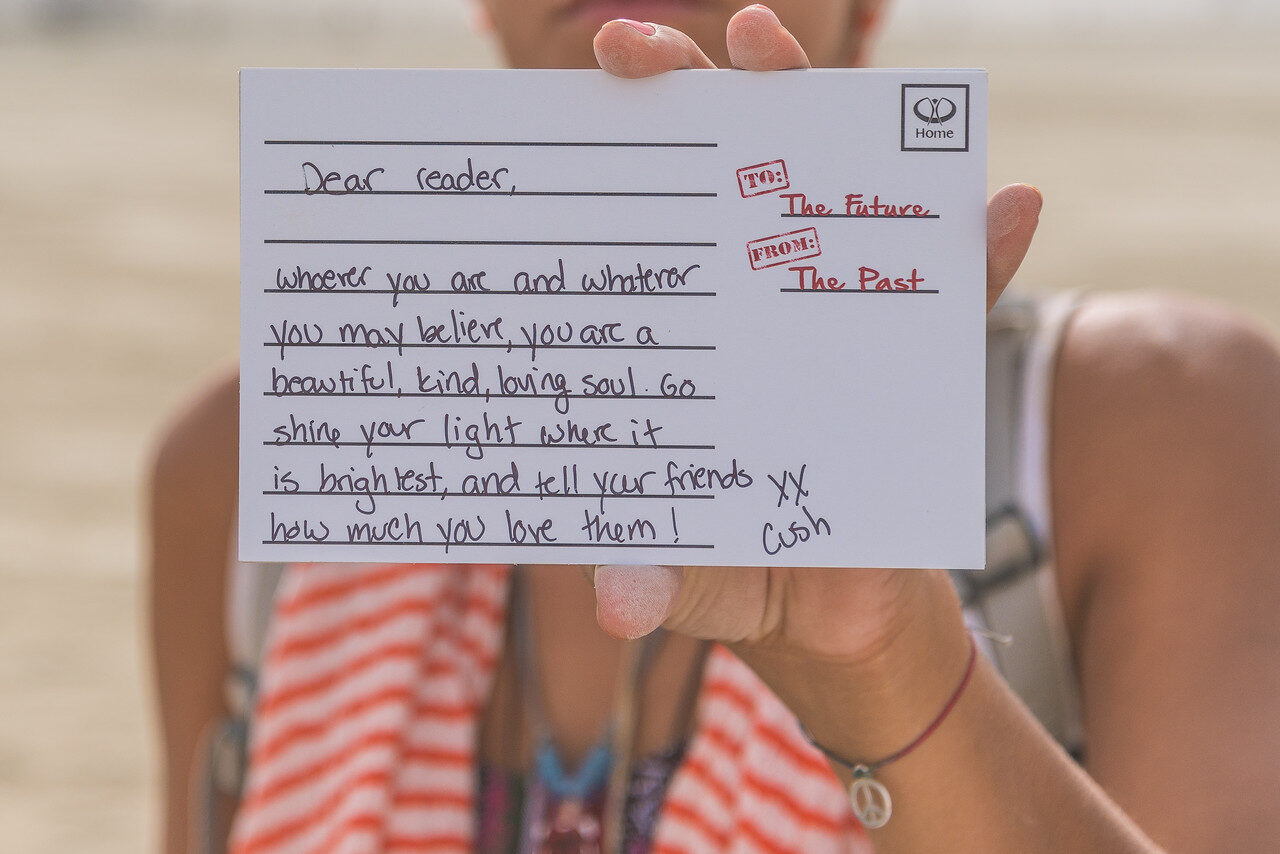 Home
Dear reader,
TO:
The Future
FROM:
The Past
whoever you are and whatever
you may believe, you are a
beautiful, kind, loving soul. Go
shine your light where it
is brightest, and tell your friends
how much you love them!
XX
Cush